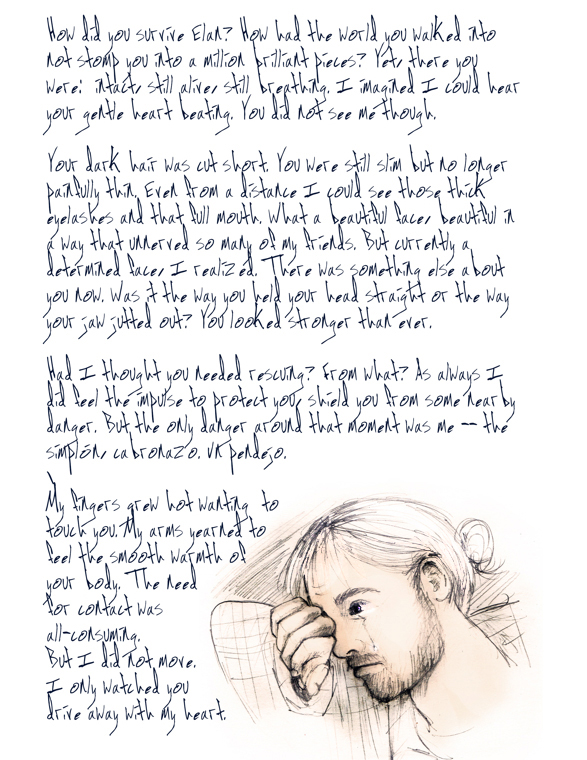 How did you survive Elan? How had the world you walked into
not stomp you into a million brilliant pieces? Yet, there you
were: intact, still alive, still breathing. I imagined I could hear
your gentle heart beating. You did not see me though.
Your dark hair was cut short. You were still slim but no longer
painfully thin. Even from a distance I could see those thick
eyelashes and that full mouth. What a beautiful face, beautiful in
a way that unnerved so many of my friends. But currently a
determined face, I realized. There was something else about
you now. Was it the way you held your head straight or the way
your jaw jutted out? You looked stronger than ever.
Had I thought you needed rescuing? From what? As always I
did feel the impulse to protect you, shield you from some nearby
danger. But the only danger around that moment was me -- the
simplón, cabronazo. Un pendejo.
My fingers grew hot wanting to
touch you. My arms yearned to
feel the smooth warmth of
your body. The need
for contact was
all-consuming.
But I did not move.
I only watched you
drive away with my heart.